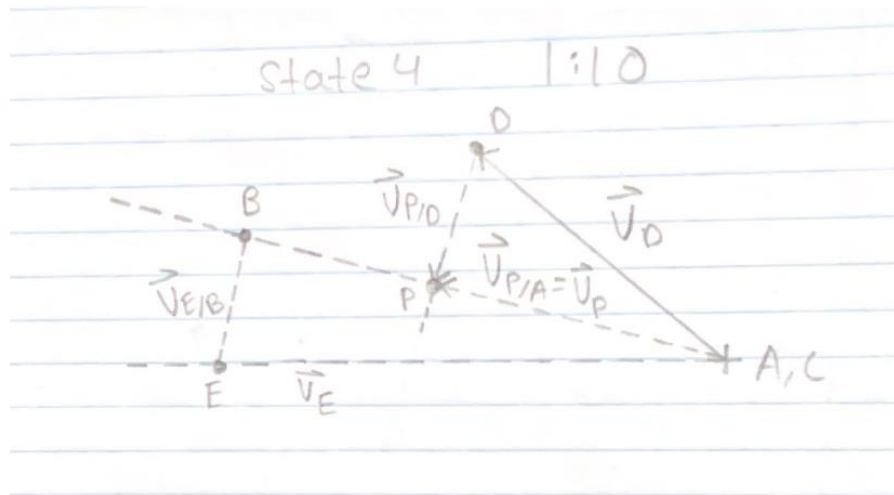 state 4 1:10
D
B
V⃗P/D
V⃗D
V⃗P/A = V⃗P
V⃗E/B
P
A, C
E
V⃗E